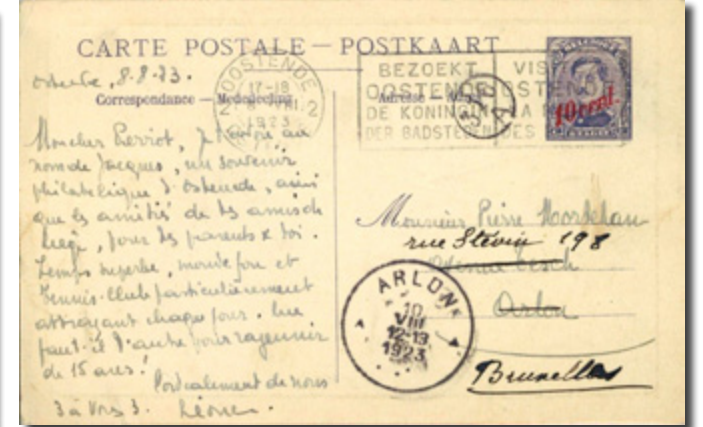 CARTE POSTALE — POSTKAART
Ostende, 8.8.23.
Correspondance — Mededeeling
Adresse —
OOSTENDE
17-18
VIII
1923
2
BEZOEKT
OOSTENDE
DE KONINGIN
DER BADSTEDEN
VIS
OSTEN
LA
DES
10 cent.
Mon cher Pierrot, je t'envoie au
nom de Jacques, un souvenir
philatélique d'Ostende, ainsi
que les amitiés de tes amis de
Liège, pour tes parents & toi.
Temps superbe, monde fou et
Tennis-Club particulièrement
attrayant chaque jour. Que
faut-il d'autre pour rajeunir
de 15 ans!
Cordialement de nous
3 à vous 3.
Monsieur Pierre
rue Stévin 198
Avenue Tesch
Arlon
Bruxelles
ARLON
10
VIII
12-13
1923